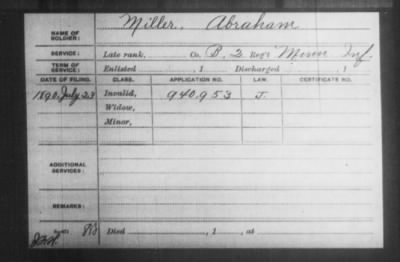 NAME OF SOLDIER: Miller, Abraham
SERVICE: Late rank, Co. B, 2 Reg't Minn Inf.
TERM OF SERVICE: Enlisted , 1 Discharged , 1
DATE OF FILING. CLASS. APPLICATION NO. LAW. CERTIFICATE NO.
1890, July 23 Invalid, 940.953 J.
Widow,
Minor,
ADDITIONAL SERVICES:
REMARKS:
Died , 1 , at